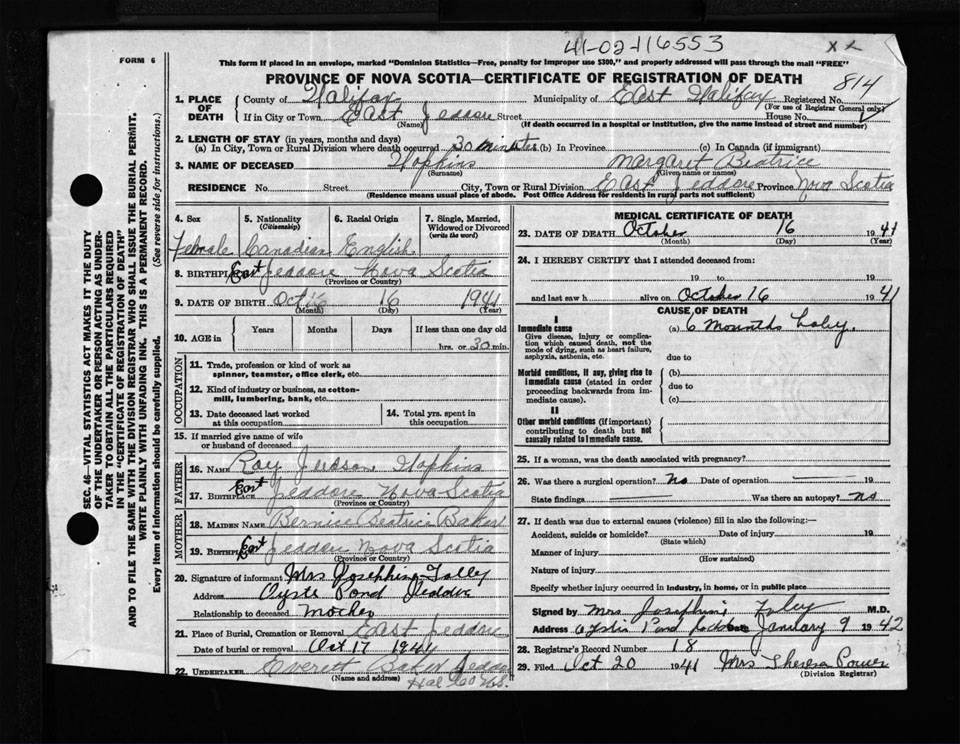 41-02-116553
XX
FORM 6
This form if placed in an envelope, marked "Dominion Statistics—Free, penalty for improper use $300," and properly addressed will pass through the mail "FREE"
PROVINCE OF NOVA SCOTIA—CERTIFICATE OF REGISTRATION OF DEATH
814
1. PLACE OF DEATH
County of Halifax Municipality of East Halifax Registered No.
(For use of Registrar General only)
If in City or Town East Jeddore Street House No.
(Name) (If death occurred in a hospital or institution, give the name instead of street and number)
2. LENGTH OF STAY (in years, months and days)
(a) In City, Town or Rural Division where death occurred 30 minutes (b) In Province (c) In Canada (if immigrant)
3. NAME OF DECEASED Hopkins Margaret Beatrice
(Surname) (Given name or names)
RESIDENCE No. Street City, Town or Rural Division East Jeddore Province Nova Scotia
(Residence means usual place of abode. Post Office Address for residents in rural parts not sufficient)
4. Sex 5. Nationality (Citizenship) 6. Racial Origin 7. Single, Married, Widowed or Divorced (write the word)
Female Canadian English
8. BIRTHPLACE East Jeddore Nova Scotia
(Province or Country)
9. DATE OF BIRTH Oct 16 16 1941
(Month) (Day) (Year)
10. AGE in Years Months Days If less than one day old
hrs. or 30 min.
OCCUPATION
11. Trade, profession or kind of work as spinner, teamster, office clerk, etc.
12. Kind of industry or business, as cotton-mill, lumbering, bank, etc.
13. Date deceased last worked at this occupation
14. Total yrs. spent in this occupation
15. If married give name of wife or husband of deceased
FATHER
16. NAME Roy Judson Hopkins
17. BIRTHPLACE East Jeddore Nova Scotia
(Province or Country)
MOTHER
18. MAIDEN NAME Bernice Beatrice Baker
19. BIRTHPLACE East Jeddore Nova Scotia
(Province or Country)
20. Signature of informant Mrs Josephine
Address Oyster Pond Jeddore
Relationship to deceased
21. Place of Burial, Cremation or Removal East Jeddore
Date of burial or removal Oct 17 1941
22. UNDERTAKER Everett Baker Jeddore
(Name and address)
Hal Co N.S.
MEDICAL CERTIFICATE OF DEATH
23. DATE OF DEATH October 16 1941
(Month) (Day) (Year)
24. I HEREBY CERTIFY that I attended deceased from:
19 to 19
and last saw h alive on October 16 1941
CAUSE OF DEATH
I
Immediate cause
Give disease, injury or complication which caused death, not the mode of dying, such as heart failure, asphyxia, asthenia, etc.
(a) 6 Mounths baby.
due to
Morbid conditions, if any, giving rise to immediate cause (stated in order proceeding backwards from immediate cause).
(b)
due to
(c)
II
Other morbid conditions (if important) contributing to death but not causally related to immediate cause.
25. If a woman, was the death associated with pregnancy?
26. Was there a surgical operation? No Date of operation
State findings Was there an autopsy? no
27. If death was due to external causes (violence) fill in also the following:—
Accident, suicide or homicide? Date of injury 19
(State which)
Manner of injury
(How sustained)
Nature of injury
Specify whether injury occurred in industry, in home, or in public place
Signed by Mrs Josephine M.D.
Address Pond Date January 9 1942
28. Registrar's Record Number 18
29. Filed Oct 20 1941 Mrs Theresa Power
(Division Registrar)
SEC. 46—VITAL STATISTICS ACT MAKES IT THE DUTY
OF THE UNDERTAKER OR PERSON ACTING AS UNDER-
TAKER TO OBTAIN ALL THE PARTICULARS REQUIRED
IN THE "CERTIFICATE OF REGISTRATION OF DEATH"
AND TO FILE THE SAME WITH THE DIVISION REGISTRAR WHO SHALL ISSUE THE BURIAL PERMIT.
WRITE PLAINLY WITH UNFADING INK. THIS IS A PERMANENT RECORD.
Every item of information should be carefully supplied. (See reverse side for instructions.)